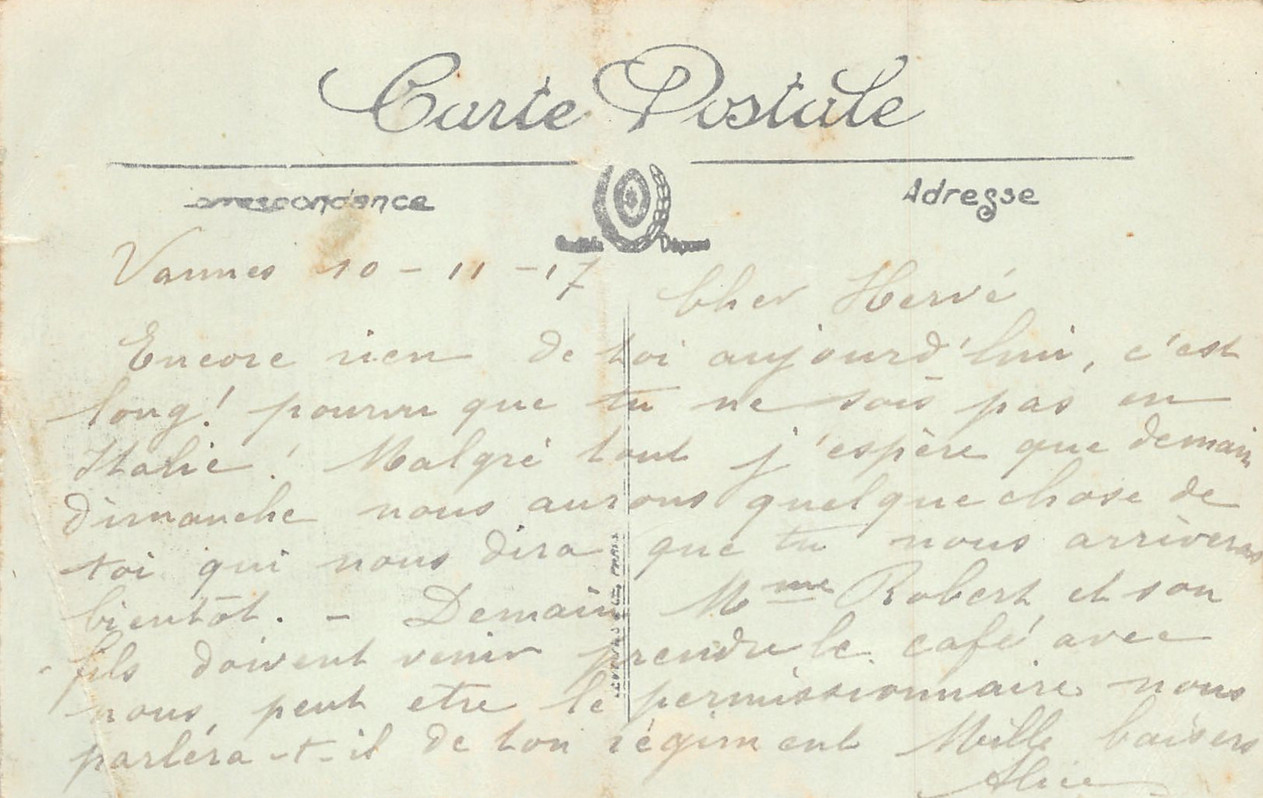 Carte Postale
Correspondance
Adresse
Vannes 10-11-17
Cher Hervé
Encore rien de toi aujourd'hui, c'est
long! pourvu que tu ne sois pas en
Italie! Malgré tout j'espère que demain
dimanche nous aurons quelque chose de
toi qui nous dira que tu nous arriveras
bientôt. - Demain Mme Robert et son
fils doivent venir prendre le café avec
nous, peut etre le permissionnaire nous
parléra-t-il de ton régiment Mille baisers
Alice
PARIS